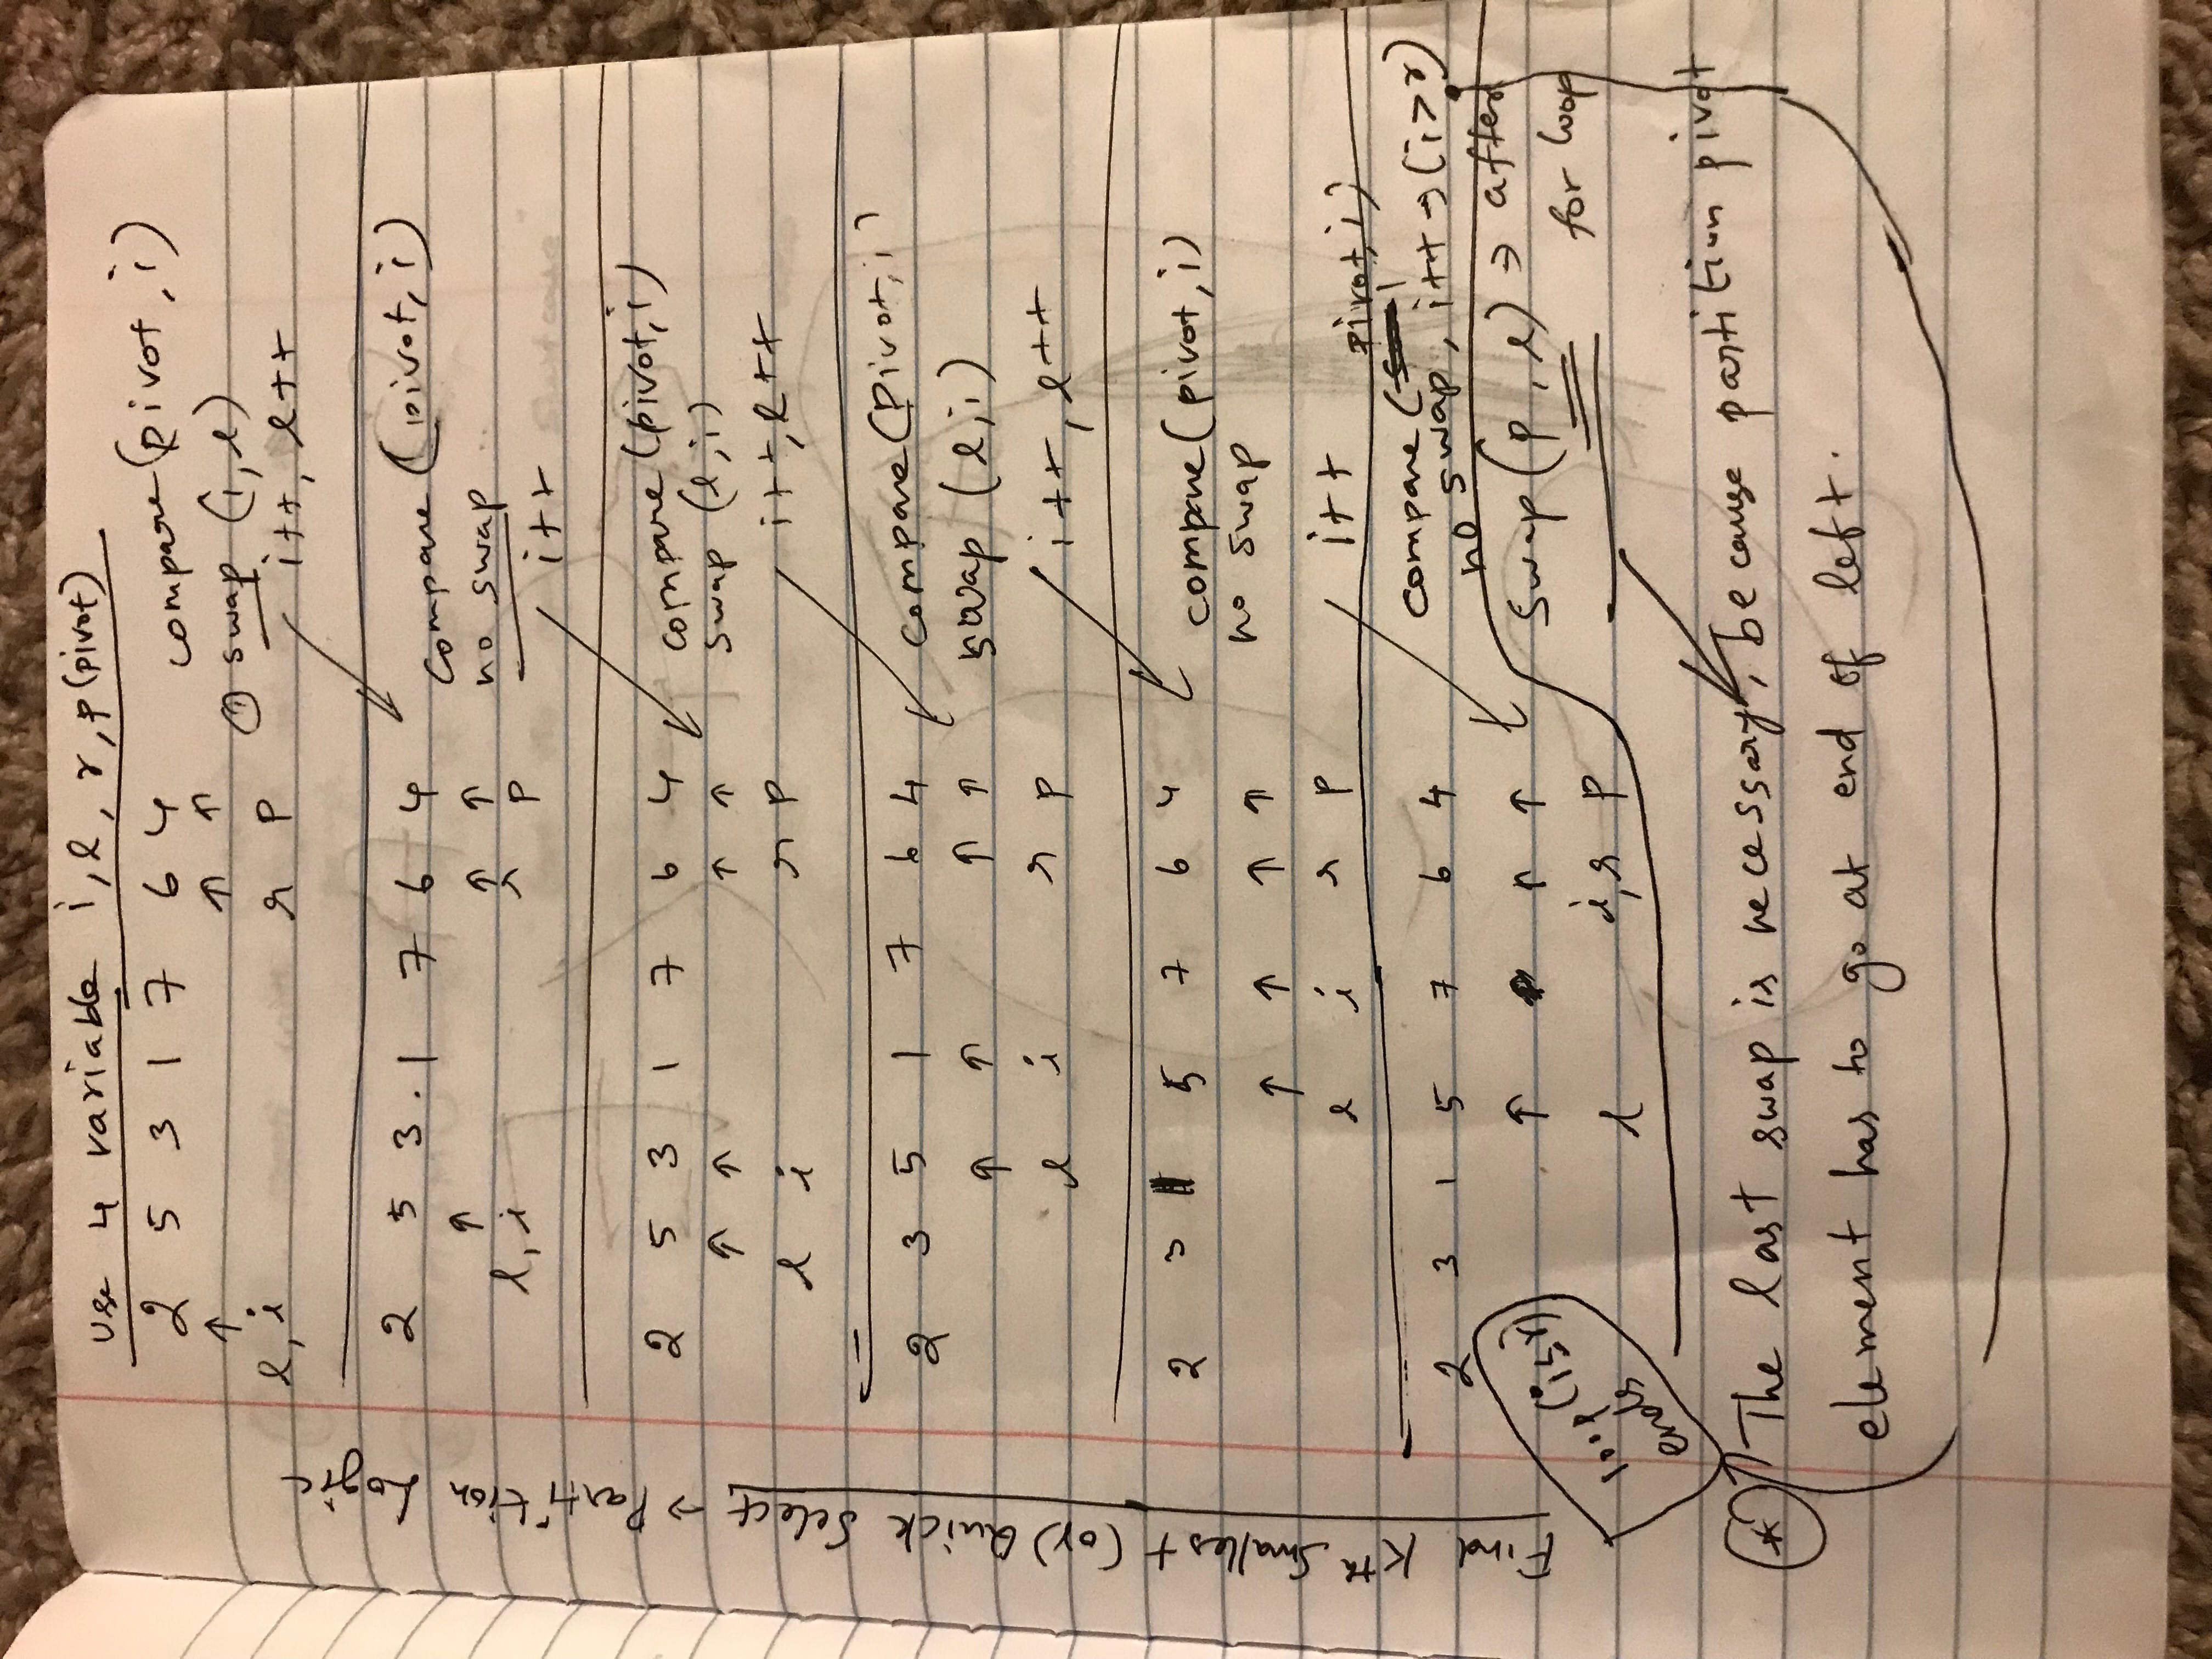 Find Kth Smallest (or) Quick Select → Partition Logic
use 4 variable i, l, r, p(pivot)
2 5 3 1 7 6 4 compare(pivot, i)
↑ ↑ ↑ ① swap (i, l)
l, i r p i++, l++
2 5 3 . 1 7 6 4 compare (pivot, i)
↑ ↑ ↑ no swap
l, i r p i++
2 5 3 1 7 6 4 compare (pivot, i)
↑ ↑ ↑ ↑ swap (l, i)
l i r p i++, l++
2 3 5 1 7 6 4 compare (Pivot, i)
↑ ↑ ↑ ↑ swap (l, i)
l i r p i++, l++
2 3 1 5 7 6 4 compare(pivot, i)
no swap
↑ ↑ ↑ ↑
l i r p i++
compare (pivot, i)
2 3 1 5 7 6 4 no swap, i++ → (i>r)
↑ ↑ ↑ swap (p, l) → after
for loop
l i, r p
loop (i≤r)
ends
* The last swap is necessary, because partition pivot
element has to go at end of left.